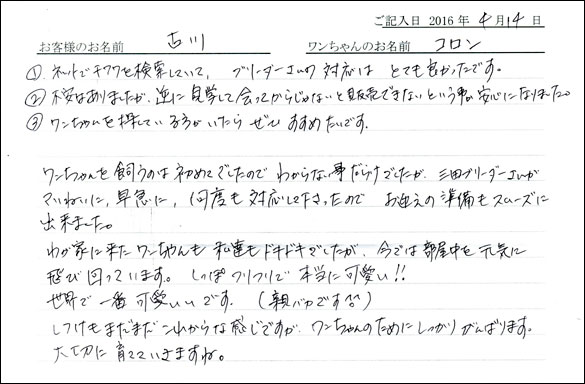 ご記入日 2016 年 4月 14 日
お客様のお名前 古川 ワンちゃんのお名前 コロン
① ネットでチワワを検索していて、 ブリーダーさんの対応は とても良かったです。
② 不安はありましたが、逆に見学して会ってからじゃないと販売できないという事が安心になりました。
③ ワンちゃんを探している方がいたら ぜひ すすめたいです。
ワンちゃんを飼うのは初めてでしたので わからない事だらけでしたが、三田ブリーダーさんが
ていねいに、早急に、何度も対応して下さったので お迎えの準備もスムーズに
出来ました。
わが家に来たワンちゃんも 私達もドキドキでしたが、今では部屋中を元気に
飛び回っています。 しっぽフリフリで 本当に可愛い!!
世界で一番 可愛いいです。 (親バカです^^)
しつけもまだまだ これからな感じですが、ワンちゃんのためにしっかりがんばります。
大切に育てていきますね。